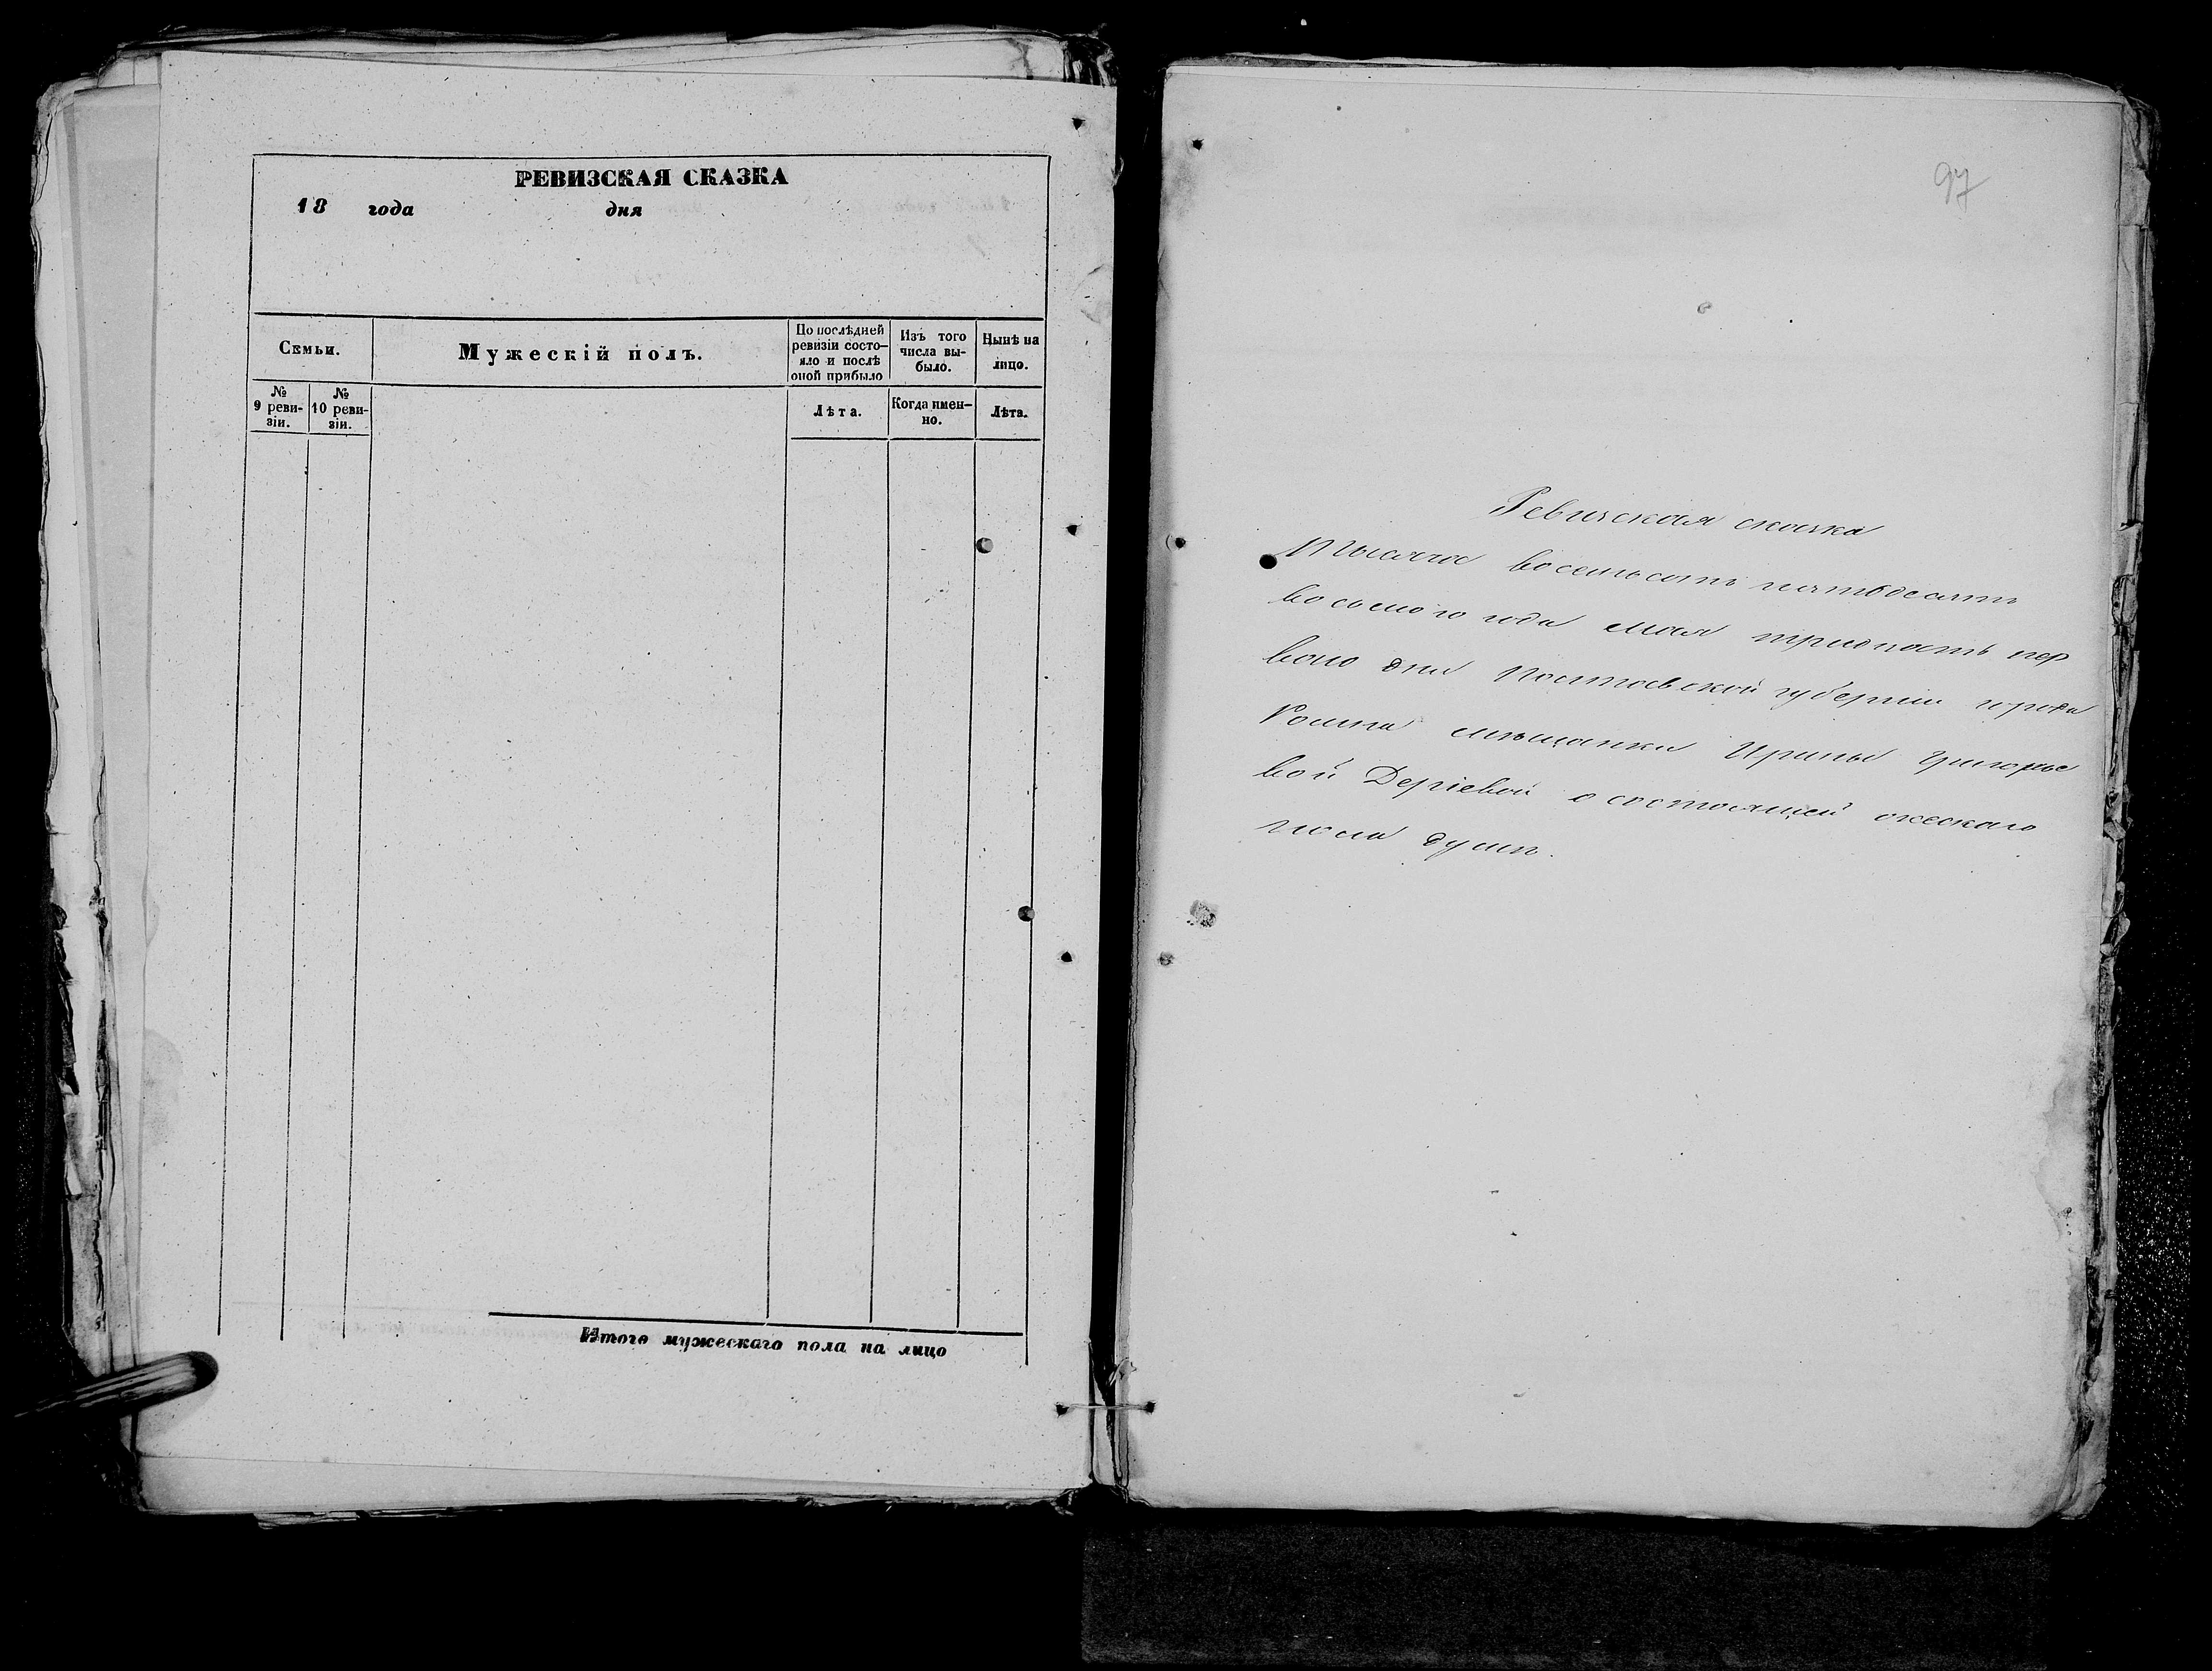 РЕВИЗСКАЯ СКАЗКА
18 года дня
Семьи.
Мужескій полъ.
По послѣдней ревизіи состо-
яло и послѣ
оной прибыло
Изъ того
числа вы-
было.
Нынѣ на
лицо.
№
9 реви-
зіи.
№
10 реви-
зіи.
Лѣта.
Когда имен-
но.
Лѣта.
Итого мужескаго пола на лицо
97
Ревизская сказка
Тысяча восемьсотъ пятьдесятъ
восьмого года мая тридцать пер
вого дня Полтавской губерніи города
Ромна мѣщанки Ирины Григорье
вой Дергіевой о состоящей женскаго
пола души.